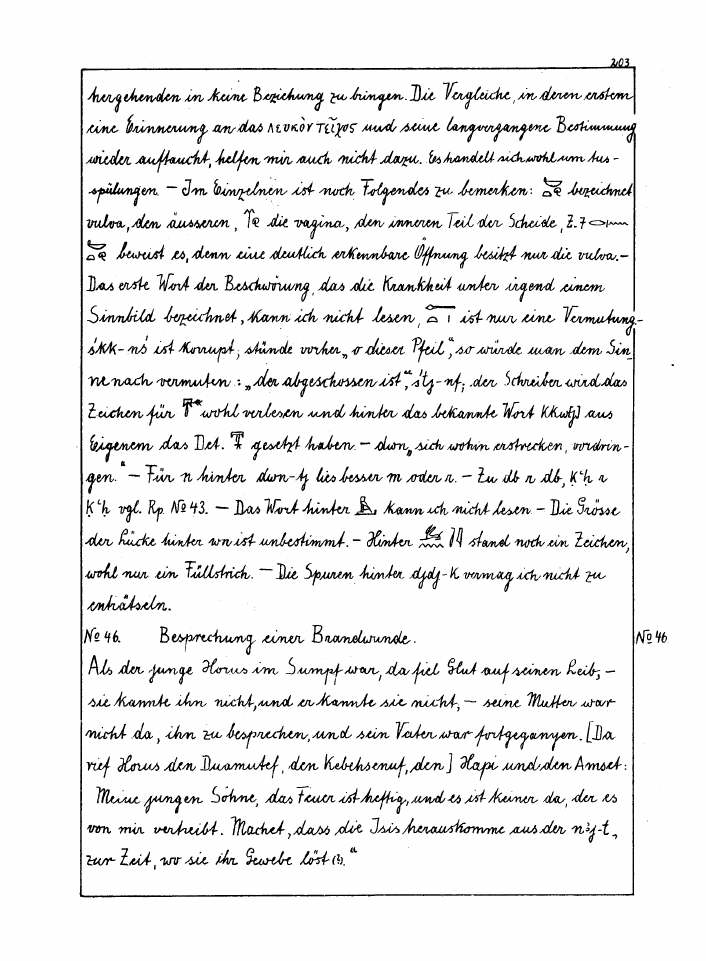 203
hergehenden in keine Beziehung zu bringen. Die Vergleiche, in deren erstem
eine Erinnerung an das λευκὸν τεῖχος und seine langvergangene Bestimmung
wieder auftaucht, helfen mir auch nicht dazu. Es handelt sich wohl um Aus-
spülungen. – Im Einzelnen ist noch Folgendes zu bemerken: bezeichnet
vulva, den äusseren, die vagina, den inneren Teil der Scheide, Z. 7
beweist es, denn eine deutlich erkennbare Öffnung besitzt nur die vulva. –
Das erste Wort der Beschwörung, das die Krankheit unter irgend einem
Sinnbild bezeichnet, kann ich nicht lesen, ist nur eine Vermutung. –
śkk-nś ist korrupt; stünde vorher „o dieser Pfeil“, so würde man dem Sin
ne nach vermuten: „der abgeschossen ist“, śtj-nf; der Schreiber wird das
Zeichen für wohl verlesen und hinter das bekannte Wort kkwtj aus
Eigenem das Det. gesetzt haben. – dwn „sich wohin erstrecken, vordrin-
gen.“ – Für n hinter dwn-tj lies besser m oder r. – Zu db r db, ḳʿḥ r
ḳʿḥ vgl. Rp. № 43. – Das Wort hinter kann ich nicht lesen – Die Grösse
der Lücke hinter wn ist unbestimmt. – Hinter stand noch ein Zeichen,
wohl nur ein Füllstrich. – Die Spuren hinter djdj-k vermag ich nicht zu
enträtseln.
№ 46. Besprechung einer Brandwunde. № 46
Als der junge Horus im Sumpf war, da fiel Glut auf seinen Leib; –
sie kannte ihn nicht, und er kannte sie nicht, – seine Mutter war
nicht da, ihn zu besprechen, und sein Vater war fortgegangen. [Da
rief Horus den Duamutef, den Kebehsenuf, den] Hapi und den Amset:
„Meine jungen Söhne, das Feuer ist heftig, und es ist keiner da, der es
von mir vertreibt. Machet, dass die Isis herauskomme aus der nꜣj-t,
zur Zeit, wo sie ihr Gewebe löst (?).“